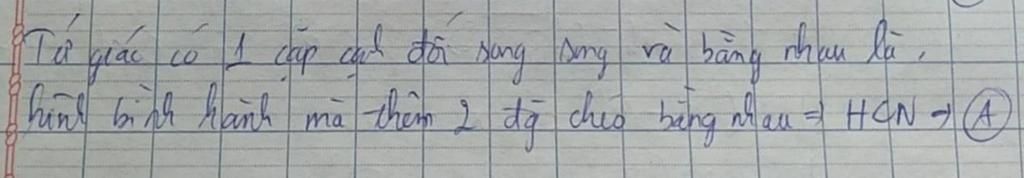 Tứ giác có 1 cặp cạh đối song song và bằng nhau là,
hình bình hành mà thêm 2 đg chéo bằng nhau => HCN → A